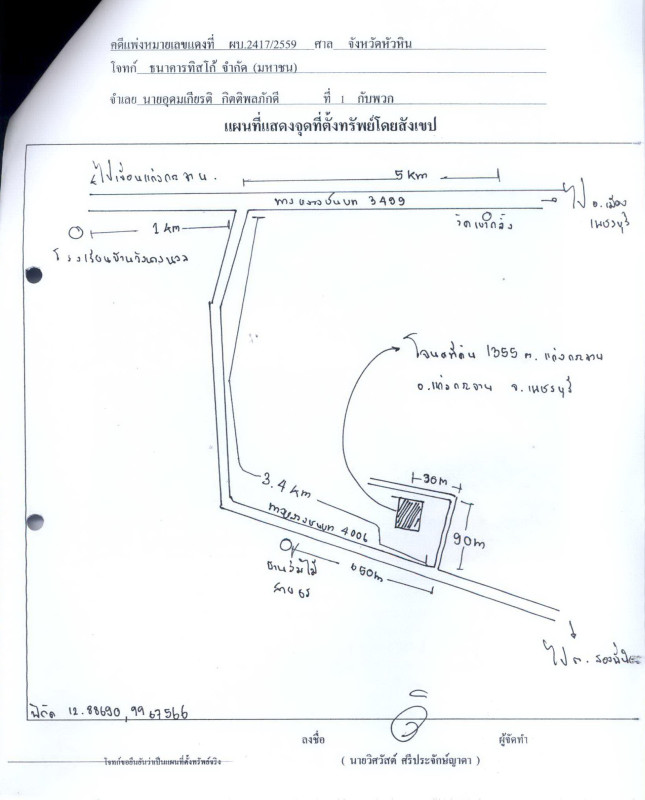 คดีแพ่งหมายเลขแดงที่ ผบ.2417/2559 ศาล จังหวัดหัวหิน
โจทก์ ธนาคารทิสโก้ จำกัด (มหาชน)
จำเลย นายอุดมเกียรติ กิตติพลภักดี ที่ 1 กับพวก
แผนที่แสดงจุดที่ตั้งทรัพย์โดยสังเขป
ไปเขื่อนแก่งกระจาน.
5 km
ทางหลวงชนบท 3499
ไป อ.เมือง
เพชรบุรี
1 km
วัดเขากลิ้ง
โรงเรียนบ้านวังนางนวล
โฉนดที่ดิน 1355 ต. แก่งกระจาน
อ.แก่งกระจาน จ.เพชรบุรี
3.4 km
30m
ทางหลวงชนบท 4006
90m
650m
ไป ต.
พิกัด 12.88690, 99.67566
ลงชื่อ ผู้จัดทำ
โจทก์ขอยืนยันว่าเป็นแผนที่ตั้งทรัพย์จริง
( นายวิศวัสต์ ศรีประจักษ์ญาดา )